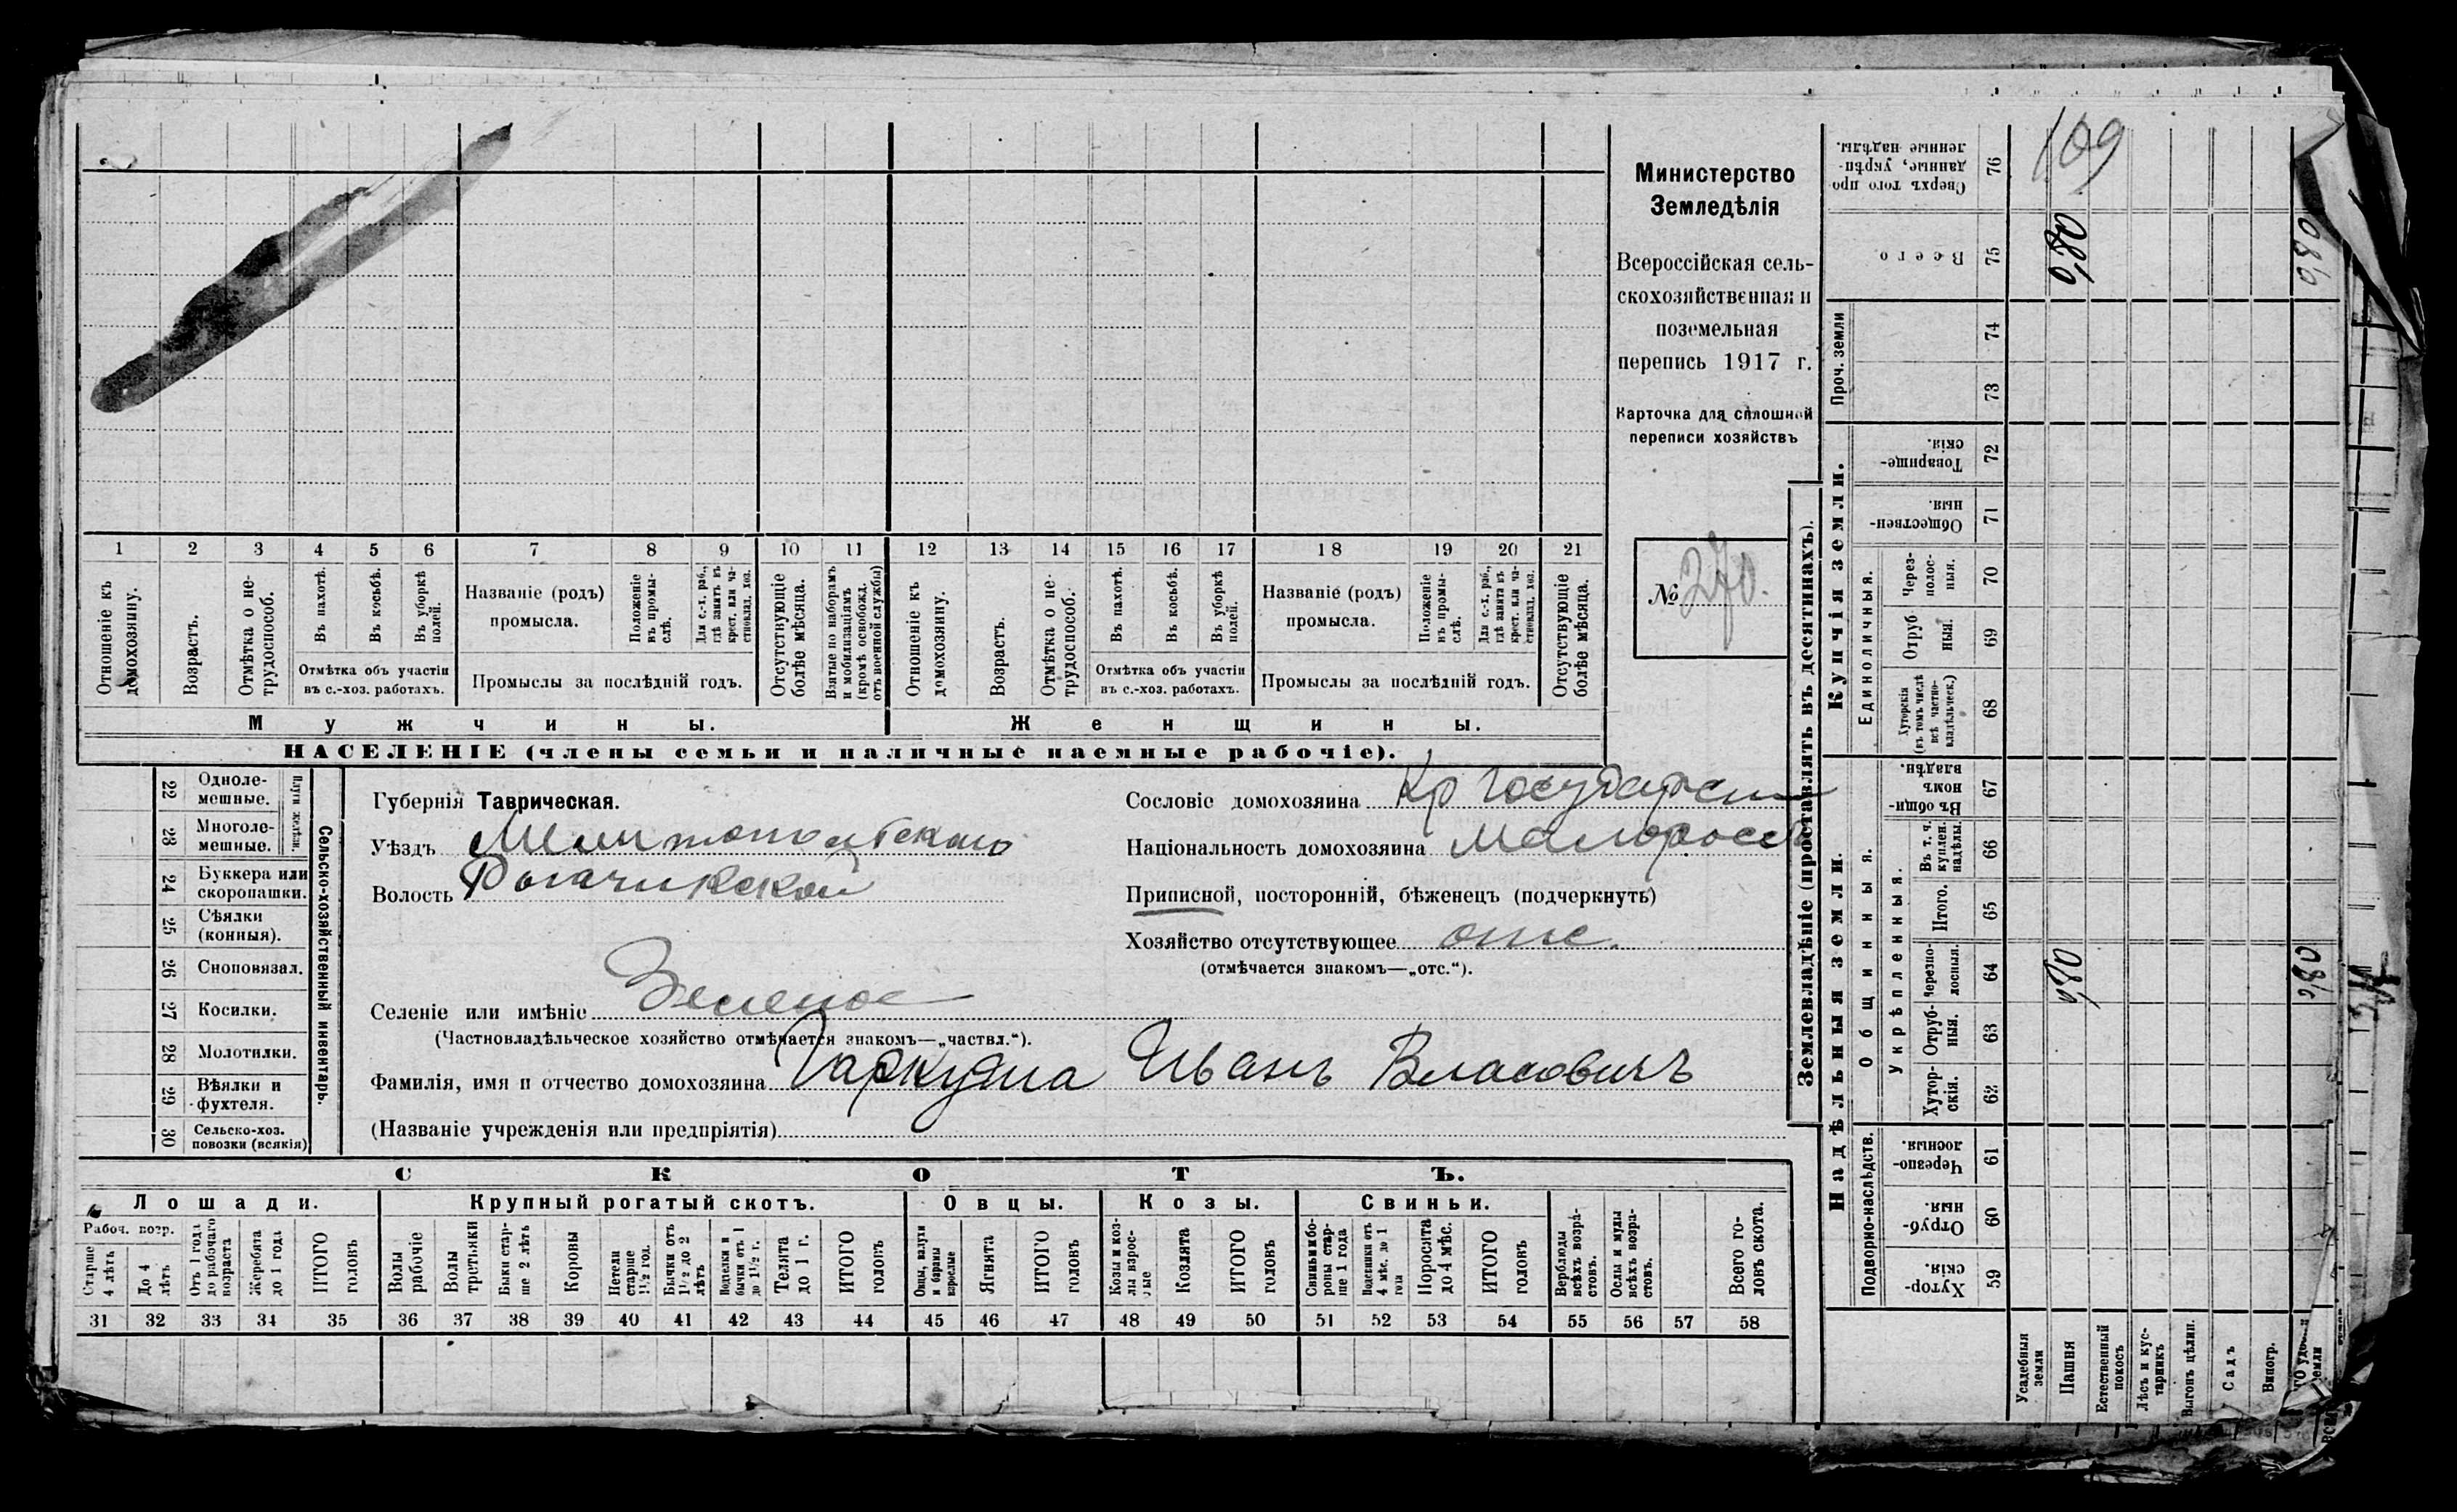 Министерство
Земледѣлія
Всероссійская сель-
скохозяйственная и
поземельная
перепись 1917 г.
Карточка для сплошной
переписи хозяйствъ
№ 270.
1 2 3 4 5 6 7 8 9 10 11 12 13 14 15 16 17 18 19 20 21
Отношеніе къ домохозяину.
Возрастъ.
Отмѣтка о не-трудоспособ.
Въ пахотѣ.
Въ косьбѣ.
Въ уборкѣ полей.
Отмѣтка объ участіи
въ с.-хоз. работахъ.
Названіе (родъ)
промысла.
Положеніе въ промы-слѣ.
Для с.-х. раб., гдѣ занятъ въ крест. или ча-стновлад. хоз.
Промыслы за послѣдній годъ.
Отсутствующіе болѣе мѣсяца.
Взятые по наборамъ и мобилизаціямъ (кромѣ освобожд. отъ военной службы)
Отношеніе къ домохозяину.
Возрастъ.
Отмѣтка о не-трудоспособ.
Въ пахотѣ.
Въ косьбѣ.
Въ уборкѣ полей.
Отмѣтка объ участіи
въ с.-хоз. работахъ.
Названіе (родъ)
промысла.
Положеніе въ промы-слѣ.
Для с.-х. раб., гдѣ занята въ крест. или ча-стновлад. хоз.
Промыслы за послѣдній годъ.
Отсутствующіе болѣе мѣсяца.
Мужчины.
Женщины.
НАСЕЛЕНІЕ (члены семьи и наличные наемные рабочіе).
22 Одноле-мешные.
23 Многоле-мешные.
24 Буккера или скоропашки.
25 Сѣялки (конныя).
26 Сноповязал.
27 Косилки.
28 Молотилки.
29 Вѣялки и фухтеля.
30 Сельско-хоз. повозки (всякія)
Плуги желѣзн.
Сельско-хозяйственный инвентарь.
Губернія Таврическая.
Уѣздъ Мелитопольскаго
Волость Рогачикской
Селеніе или имѣніе Зеленое
(Частновладѣльческое хозяйство отмѣчается знакомъ—„частвл.“).
Фамилія, имя и отчество домохозяина Гаркуша Иванъ Власовичъ
(Названіе учрежденія или предпріятія)
Сословіе домохозяина Кр государств
Національность домохозяина малороссъ
Приписной, посторонній, бѣженецъ (подчеркнуть)
Хозяйство отсутствующее отс.
(отмѣчается знакомъ—„отс.“).
СКОТЪ.
Лошади.
Крупный рогатый скотъ.
Овцы.
Козы.
Свиньи.
Рабоч. возр.
Старше 4 лѣтъ
До 4 лѣтъ
Отъ 1 года до рабочаго возраста
Жеребята до 1 года
ИТОГО головъ
Волы рабочіе
Волы третьяки
Быки стар-ше 2 лѣтъ
Коровы
Нетели старше 1½ год.
Бычки отъ 1½ до 2 лѣтъ
Подтелки и бычки отъ 1 до 1½ г.
Телята до 1 г.
ИТОГО головъ
Овцы, валухи и бараны взрослые
Ягнята
ИТОГО головъ
Козы и коз-лы взрос-лые
Козлята
ИТОГО головъ
Свиньи и бо-ровы стар-ше 1 года
Подсвинки отъ 4 мѣс. до 1 года
Поросята до 4 мѣс.
ИТОГО головъ
Верблюды всѣхъ возра-стовъ.
Ослы и мулы всѣхъ возра-стовъ.
Всего го-ловъ скота.
31 32 33 34 35 36 37 38 39 40 41 42 43 44 45 46 47 48 49 50 51 52 53 54 55 56 57 58
Землевладѣніе (проставлять въ десятинахъ).
Купчія земли.
Надѣльныя земли.
Проч. земли
Единоличныя.
Общинныя.
Укрѣпленныя.
Подворно-наслѣдств.
Сверхъ того про данные, укрѣп-ленные надѣлы. 76 109
Всего 75 0,80 0,80
74
73
Товарище-скія. 72
Обществен-ныя 71
Через-полос-ныя. 70
Отруб ныя. 69
Хуторскія (въ томъ числѣ всѣ частно-владѣльческ.) 68
Въ общин-номъ владѣн. 67
Въ т. ч. куплен. надѣлы. 66
Итого. 65
Черезпо-лосныя. 64 0,80 0,80
Отруб-ныя. 63
Хутор-скія. 62
Черезпо-лосныя. 61
Отруб-ныя. 60
Хутор-скія. 59
Усадебныя земли
Пашня
Естественный покосъ
Лѣсъ и кус-тарникъ
Выгонъ цѣлин.
Садъ
Виногр.